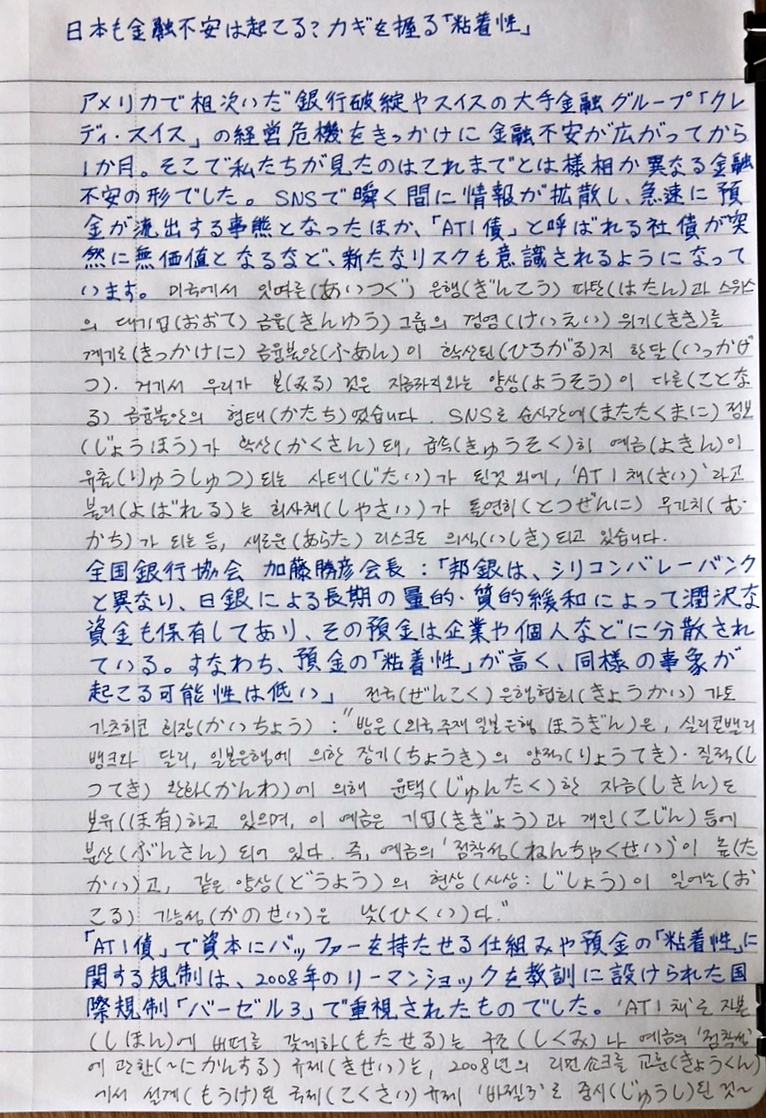 日本も金融不安は起てる?カギを握る「粘着性」
アメリカで相次いだ銀行破綻やスイスの大手金融グループ「クレ
ディ・スイス」の経営危機をきっかけに金融不安が広がってから
1か月。そこで私たちが見たのはこれまでとは様相が異なる金融
不安の形でした。SNSで瞬く間に情報が拡散し、急速に預
金が流出する事態となったほか、「AT1債」と呼ばれる社債が突
然に無価値となるなど、新たなリスクも意識されるようになって
います。미국에서 잇따른(あいつぐ) 은행(ぎんこう) 파탄(はたん)과 스위스
의 대기업(おおて) 금융(きんゆう) 그룹의 경영(けいえい) 위기(きき)를
계기로(きっかけに) 금융불안(ふあん)이 확산된(ひろがる)지 한달(いっかげ
つ). 거기서 우리가 본(みる) 것은 지금까지와는 양상(ようそう)이 다른(ことな
る) 금융불안의 형태(かたち)였습니다. SNS로 순식간에(またたくまに) 정보
(じょうほう)가 확산(かくさん)돼, 급속(きゅうそく)히 예금(よきん)이
유출(りゅうしゅつ)되는 사태(じたい)가 된것 외에, 'AT1채(さい)'라고
불리(よばれる)는 회사채(しゃさい)가 돌연히(とつぜんに) 무가치(む
かち)가 되는 등, 새로운(あらた) 리스크도 의식(いしき)되고 있습니다.
全国銀行協会 加藤勝彦会長:「邦銀は、シリコンバレーバンク
と異なり、日銀による長期の量的·質的緩和によって潤沢な
資金も保有してあり、その預金は企業や個人などに分散され
ている。すなわち、預金の「粘着性」が高く、同様の事象が
起てる可能性は低い」 전국(ぜんこく) 은행협회(きょうかい) 가토
가츠히코 회장(かいちょう) : "방은(외국 주재 일본은행 ほうぎん)은, 실리콘밸리
뱅크와 달리, 일본은행에 의한 장기(ちょうき)의 양적(りょうてき)·질적(し
つてき) 완화(かんわ)에 의해 윤택(じゅんたく)한 자금(しきん)도
보유(ほ有)하고 있으며, 이 예금은 기업(きぎょう)과 개인(こじん) 등에
분산(ぶんさん)되어 있다. 즉, 예금의 '점착성(ねんちゃくせい)'이 높(た
かい)고, 같은 양상(どうよう)의 현상(사상: じしょう)이 일어날(お
こる) 가능성(かのせい)은 낮(ひくい)다."
「AT1債」で資本にバッファーを持たせる仕組みや預金の「粘着性」に
関する規制は、2008年のリーマンショックを教訓に設けられた国
際規制「バーゼル3」で重視されたものでした。'AT1채'로 자본
(しほん)에 버퍼를 갖게하(もたせる)는 구조(しくみ)나 예금의 '점착성'
에 관한(~にかんする) 규제(きせい)는, 2008년의 리먼쇼크를 교훈(きょうくん)
에서 설계(もうけ)된 국제(こくさい) 규제 '바젤3'로 중시(じゅうし)된 것~